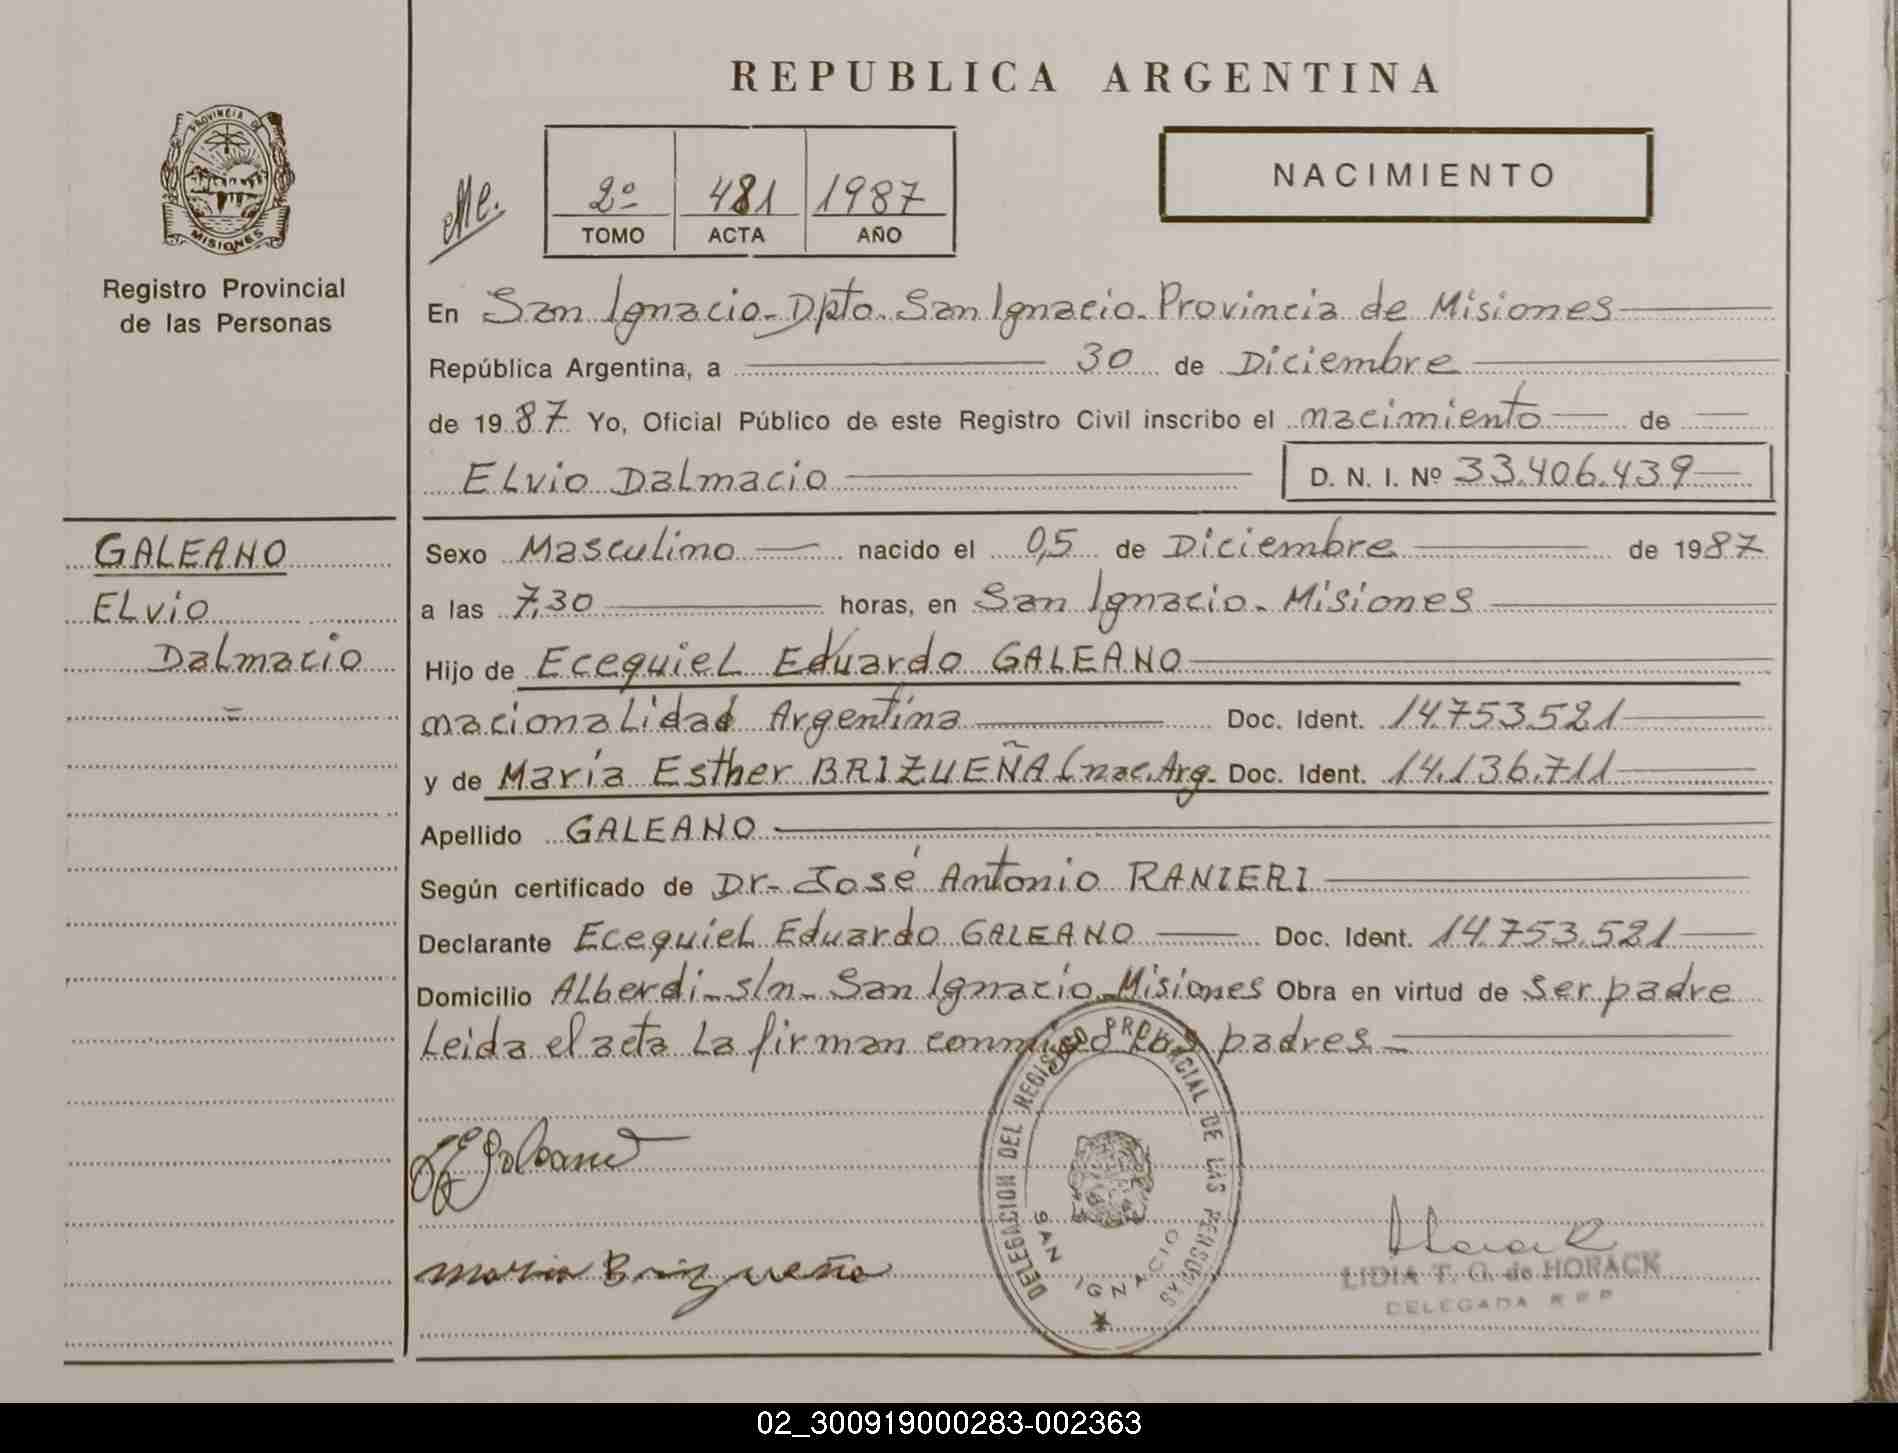 REPUBLICA ARGENTINA
PROVINCIA DE
MISIONES
Registro Provincial
de las Personas
2º 481 1987
TOMO ACTA AÑO
NACIMIENTO
En San Ignacio-Dpto. San Ignacio. Provincia de Misiones
República Argentina, a 30 de Diciembre
de 1987 Yo, Oficial Público de este Registro Civil inscribo el nacimiento de
ELvio DaLmacio D. N. I. Nº 33.406.439
GALEANO
ELvio
DaLmacio
Sexo Masculino nacido el 05 de Diciembre de 1987
a las 7,30 horas, en San Ignacio. Misiones
Hijo de EcequieL Eduardo GALEANO
nacionaLidad Argentina Doc. Ident. 14.753.521
y de María Esther BRIZUEÑA (nac. Arg. Doc. Ident. 14.136.711
Apellido GALEANO
Según certificado de Dr. José Antonio RANIERI
Declarante EcequieL Eduardo GALEANO Doc. Ident. 14.753.521
Domicilio ALberdi-s/n-San Ignacio-Misiones Obra en virtud de ser padre
Leida el acta La firman conmigo Los padres.=
DELEGACION DEL REGISTRO PROVINCIAL DE LAS PERSONAS
SAN IGNACIO
Maria Brizueña
LIDIA T. G. de HORACK
DELEGADA R P P
02_300919000283-002363